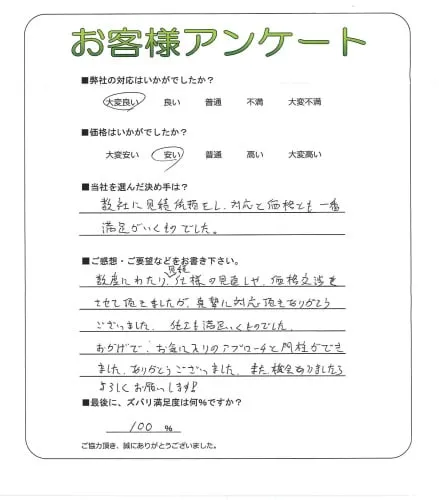 お客様アンケート
■弊社の対応はいかがでしたか？
大変良い 良い 普通 不満 大変不満
■価格はいかがでしたか？
大変安い 安い 普通 高い 大変高い
■当社を選んだ決め手は？
数社に見積依頼をし、対応と価格とも一番
満足がいくものでした。
■ご感想・ご要望などをお書き下さい。
数度にわたり、見積、仕様の見直しや、価格交渉を
させて頂きましたが、真摯に対応頂きありがとう
ございました。 施工も満足いくものでした。
おかげで、お気に入りのアプローチと門柱ができ
ました。ありがとうございました。また機会ありましたら
よろしくお願いします!
■最後に、ズバリ満足度は何%ですか？
100 %
ご協力頂き、誠にありがとうございました。